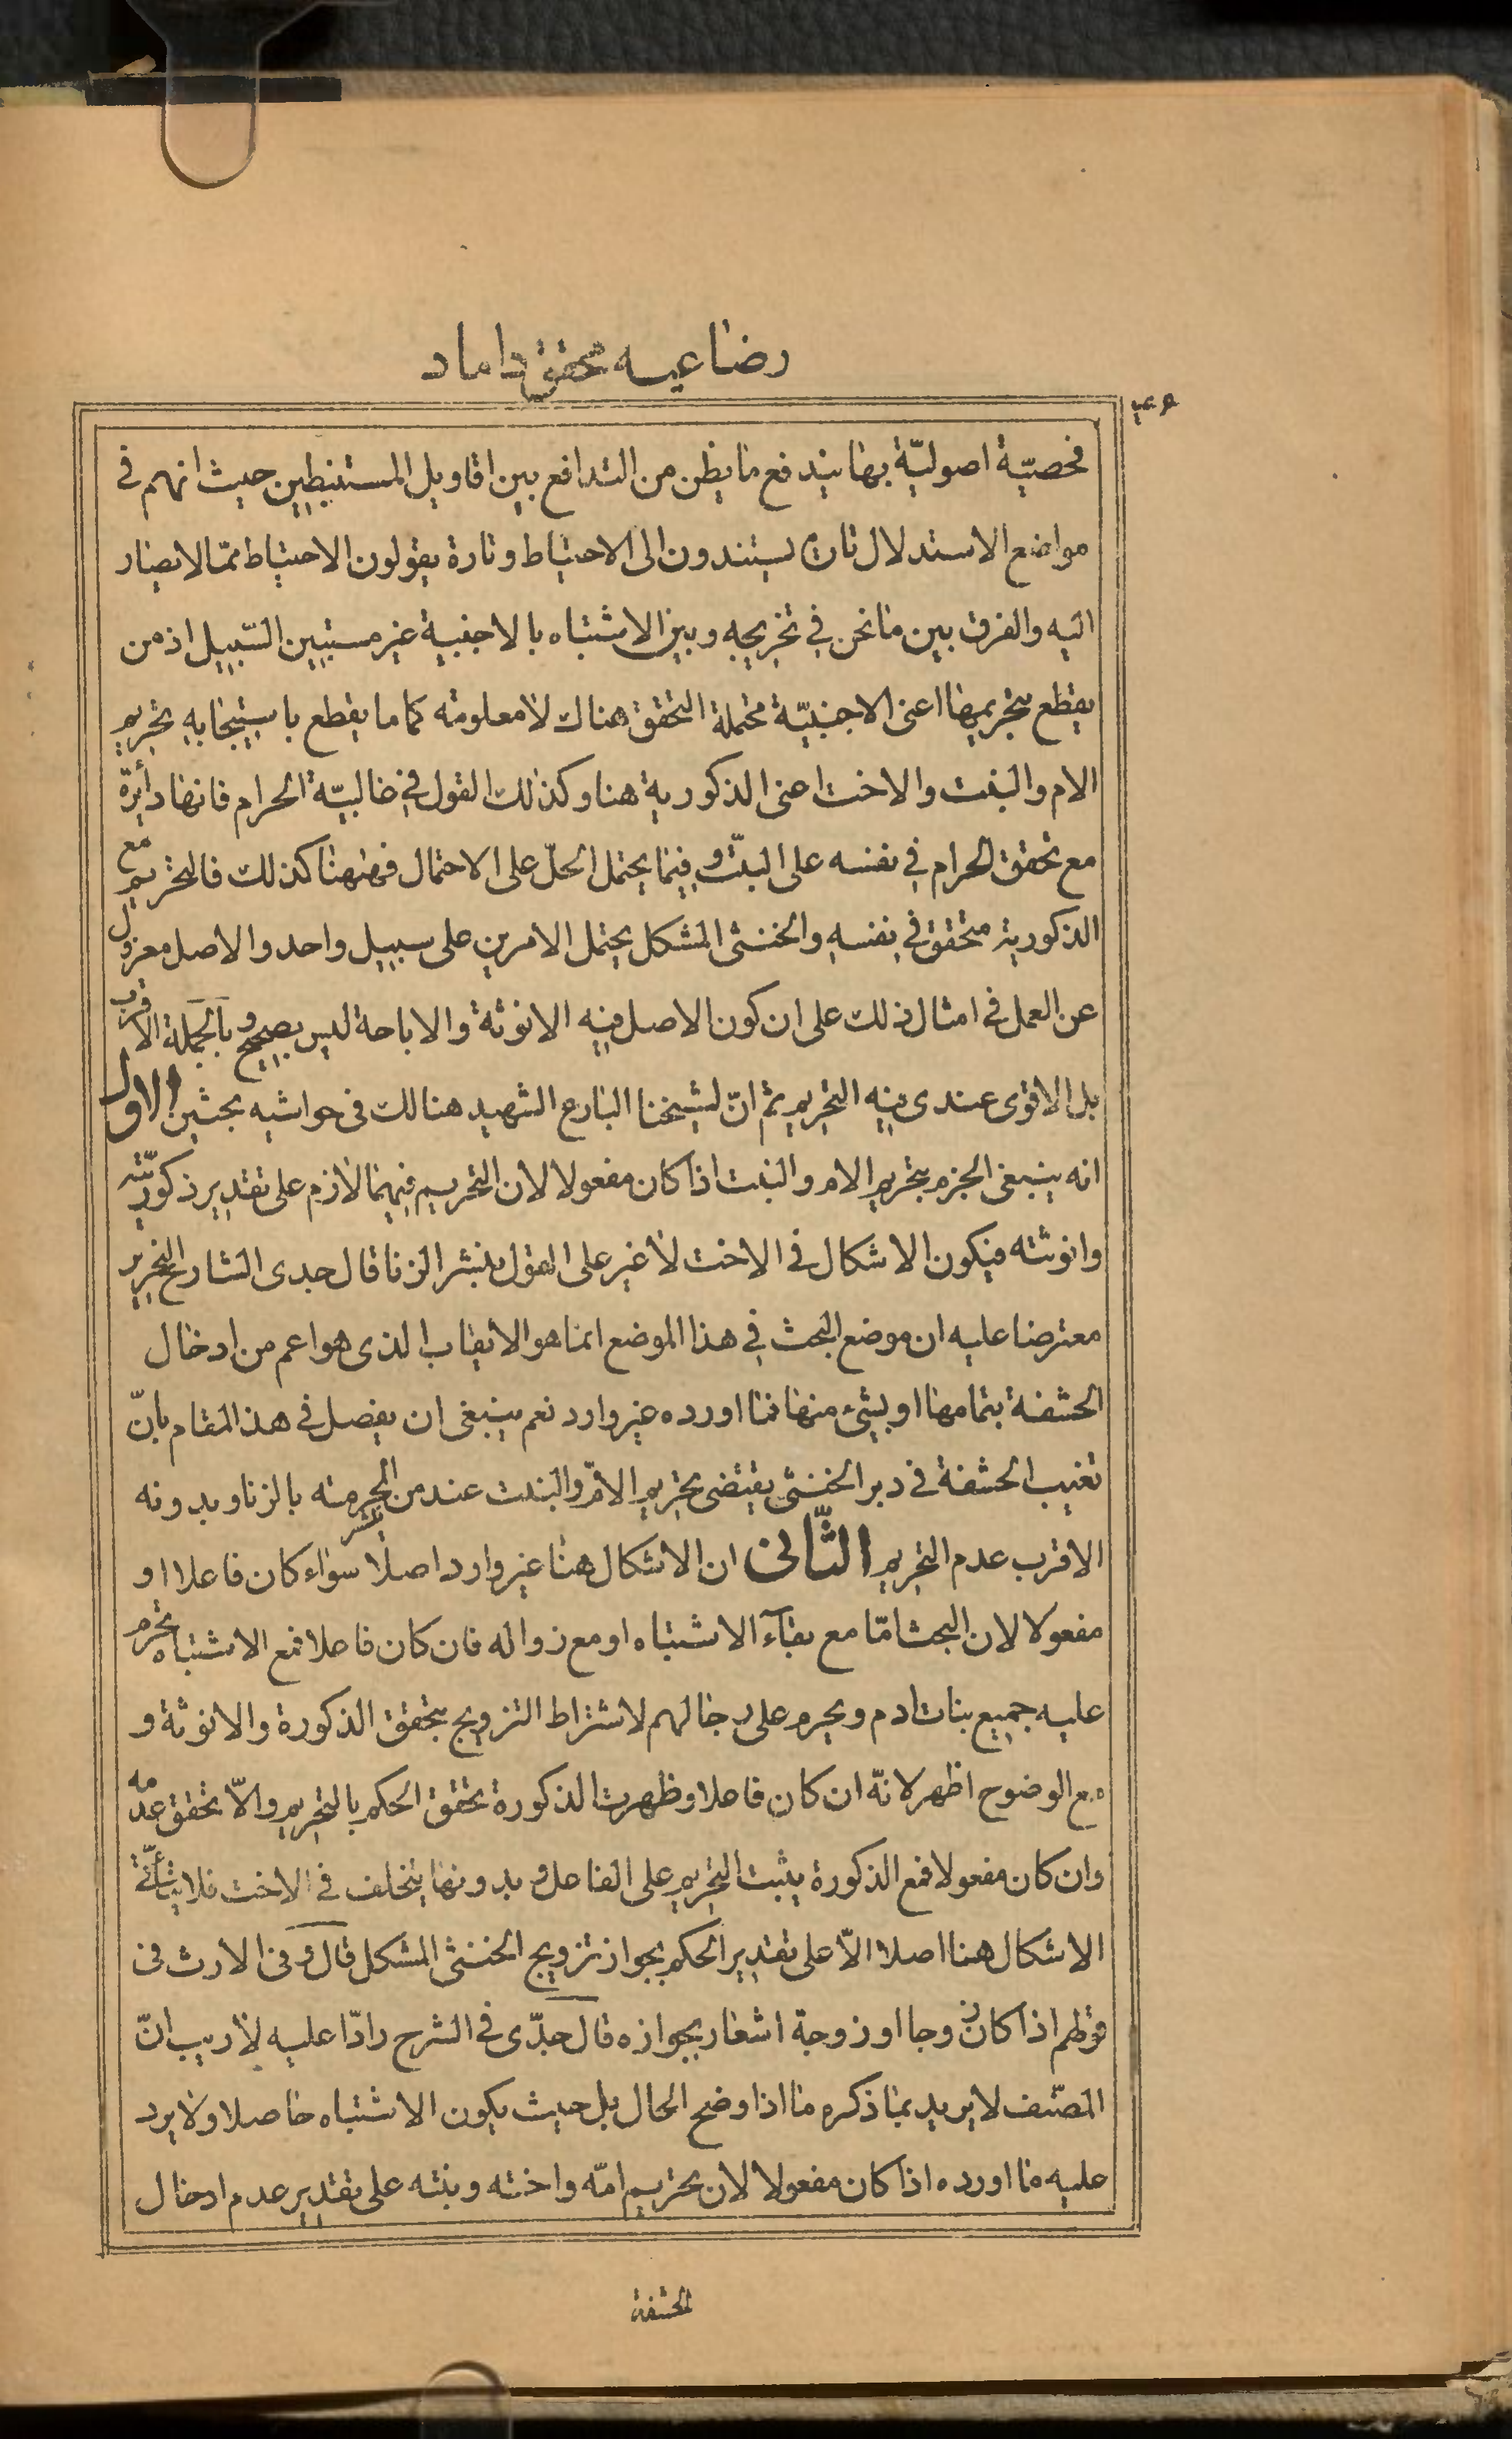 رضاعيه محقق داماد
فحصيّة اصوليّة بها يندفع ما يظن من التدافع بين اقاويل المستنبطين حيث انهم في
مواضع الاستدلال تارة يستندون الى الاحتياط وتارة يقولون الاحتياط ممّا لا يصار
اليه والفرق بين ما نحن في تخريجه وبين الاشتباه بالاجنبية غير مستبين السّبيل اذ من
يقطع بتحريمها اعنى الاجنبيّة محتملة التحقق هناك لا معلومته كما ما يقطع باستيجابه تحريم
الام والبنت والاخت اعنى الذكورية هنا وكذلك القول في غالبيّة الحرام فانها دائرة
مع تحقق الحرام في نفسه على البتّ وفيما يحتمل الحلّ على الاحتمال فههنا كذلك فالتحريم مع
الذكورية متحقق في نفسه والخنثى المشكل يحتمل الامرين على سبيل واحد والاصل معزول
عن العمل في امثال ذلك على ان كون الاصل فيه الانوثة والاباحة ليس بصحيح وبالجملة الاقرب
بل الاقوى عندى فيه التحريم ثم انّ لشيخنا البارع الشهيد هنالك في حواشيه بحثين الاول
انه ينبغى الجزم بتحريم الام والبنت اذا كان مفعولا لان التحريم فيهما لازم على تقدير ذكوريّته
وانوثته فيكون الاشكال في الاخت لا غير على القول بنشر الزنا قال جدى الشارح النحرير
معترضا عليه ان موضع البحث في هذا الموضع انما هو الايقاب الذى هو اعم من ادخال
الحشفة بتمامها او بشىء منها فما اورده غير وارد نعم ينبغى ان يفصل في هذا المقام بانّ
تغيب الحشفة في دبر الخنثى يقتضى تحريم الامّ والبنت عند من ينشر الحرمة بالزنا وبدونه
الاقرب عدم التحريم الثّانى ان الاشكال هنا غير وارد اصلا سواء كان فاعلا او
مفعولا لان البحث امّا مع بقآء الاشتباه او مع زواله فان كان فاعلا فمع الاشتباه تحرم
عليه جميع بنات ادم ويحرم على رجالهم لاشتراط التزويج بتحقق الذكورة والانوثة و
مع الوضوح اظهر لانّه ان كان فاعلا وظهرت الذكورة تحقق الحكم بالتحريم والّا تحقق عدمه
وان كان مفعولا فمع الذكورة يثبت التحريم على الفاعل وبدونها يتخلف في الاخت فلا يتأتّى
الاشكال هنا اصلا الّا على تقدير الحكم بجواز تزويج الخنثى المشكل قال وفى الارث فى
قولهم اذا كان زوجا او زوجة اشعار بجوازه قال جدّى في الشرح رادّا عليه لا ريب انّ
المصّنف لا يريد بما ذكره ما اذا وضح الحال بل حيث يكون الاشتباه حاصلا ولا يرد
عليه ما اورده اذا كان مفعولا لان تحريم امّه واخته وبنته على تقدير عدم ادخال
الحشفة